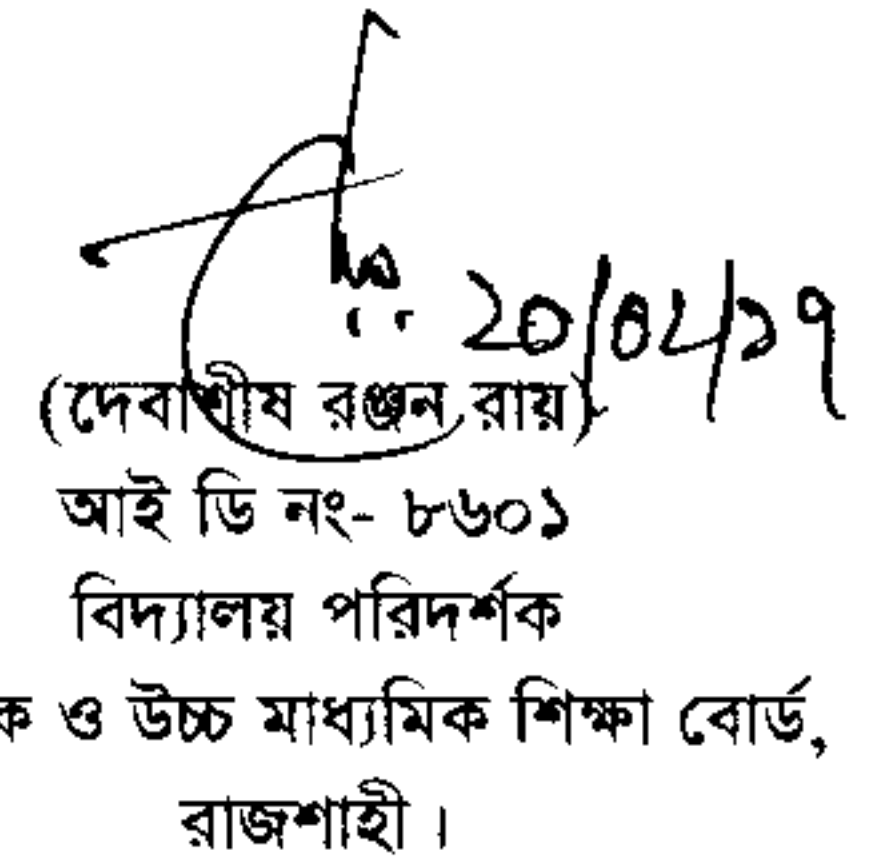 ২০/০৮/১৭
(দেবাশীষ রঞ্জন রায়)
আই ডি নং- ৮৬০১
বিদ্যালয় পরিদর্শক
ক ও উচ্চ মাধ্যমিক শিক্ষা বোর্ড,
রাজশাহী।